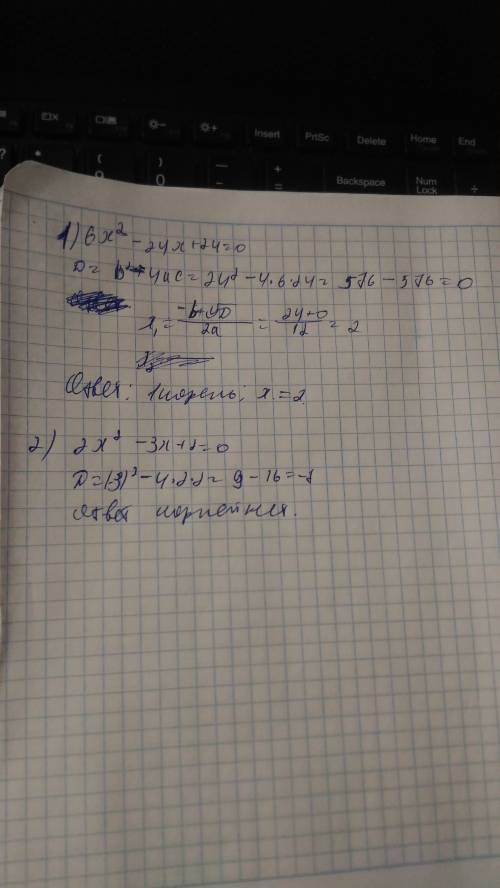 Insert PrtSc Delete Home End
Backspace Num Lock
1) 6x² - 24x + 24 = 0
D = b² - 4ac = 24² - 4·6·24 = 576 - 576 = 0
x₁ = (-b+√D)/2a = (24+0)/12 = 2
Ответ: 1 корень; x = 2
2) 2x² - 3x + 2 = 0
D = (3)² - 4·2·2 = 9 - 16 = -7
Ответ корней нет.